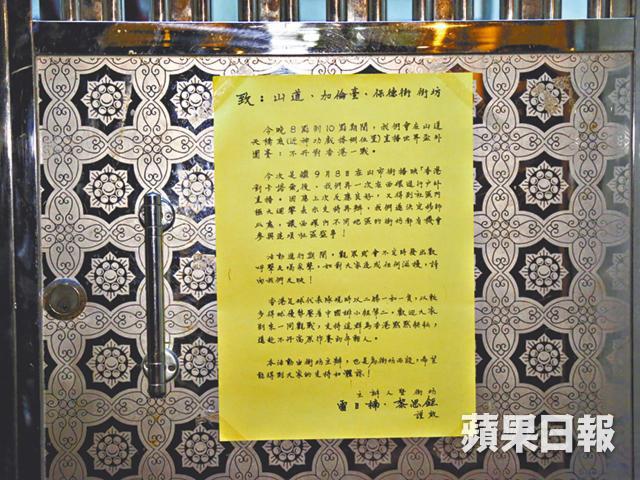 致：山道、加倫臺、保德街街坊
今晚8點到10點期間，我們會在山道
天橋底（近神功戲棚位置）直播世界盃外
圍賽：不丹對香港一戰。
今次是繼9月8日在山市街播映「香港
對卡塔爾」後，我們再一次在西環進行戶外
直播。因應上次反應良好，又得到社區內
極大迴響表示支持再辦，我們遂決定移師
此處，讓西環內不同地區的街坊都有機會
參與這項社區盛事！
活動進行期間，觀眾或會不定時發出歡
呼聲支喝采聲，如對大家造成任何滋擾，請
向我們反映！
香港足球代表隊現時以二勝一和一負，以較
多得球優勢壓過中國排小組第二，歡迎大家
到來一同觀戰，支持這群為香港默默耕耘，
遠赴不丹高原作賽的年輕人。
本活動由街坊主辦，也是為街坊而設，希望
能得到大家的支持和體諒！
主辦人暨街坊
謹啟
蘋果日報